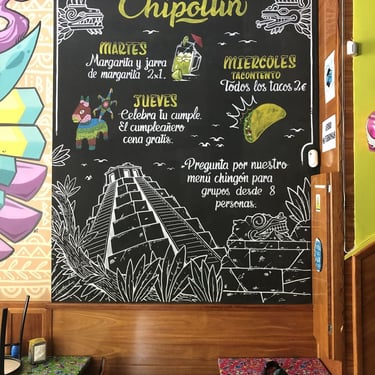 Chipotlin
MARTES
Margarita y jarra
de margarita 2x1.
MIERCOLES
TACONTENTO
Todos los tacos 2€
JUEVES
Celebra tu cumple.
El cumpleañero
cena gratis.
Pregunta por nuestro
menú chingón para
grupos desde 8
personas.